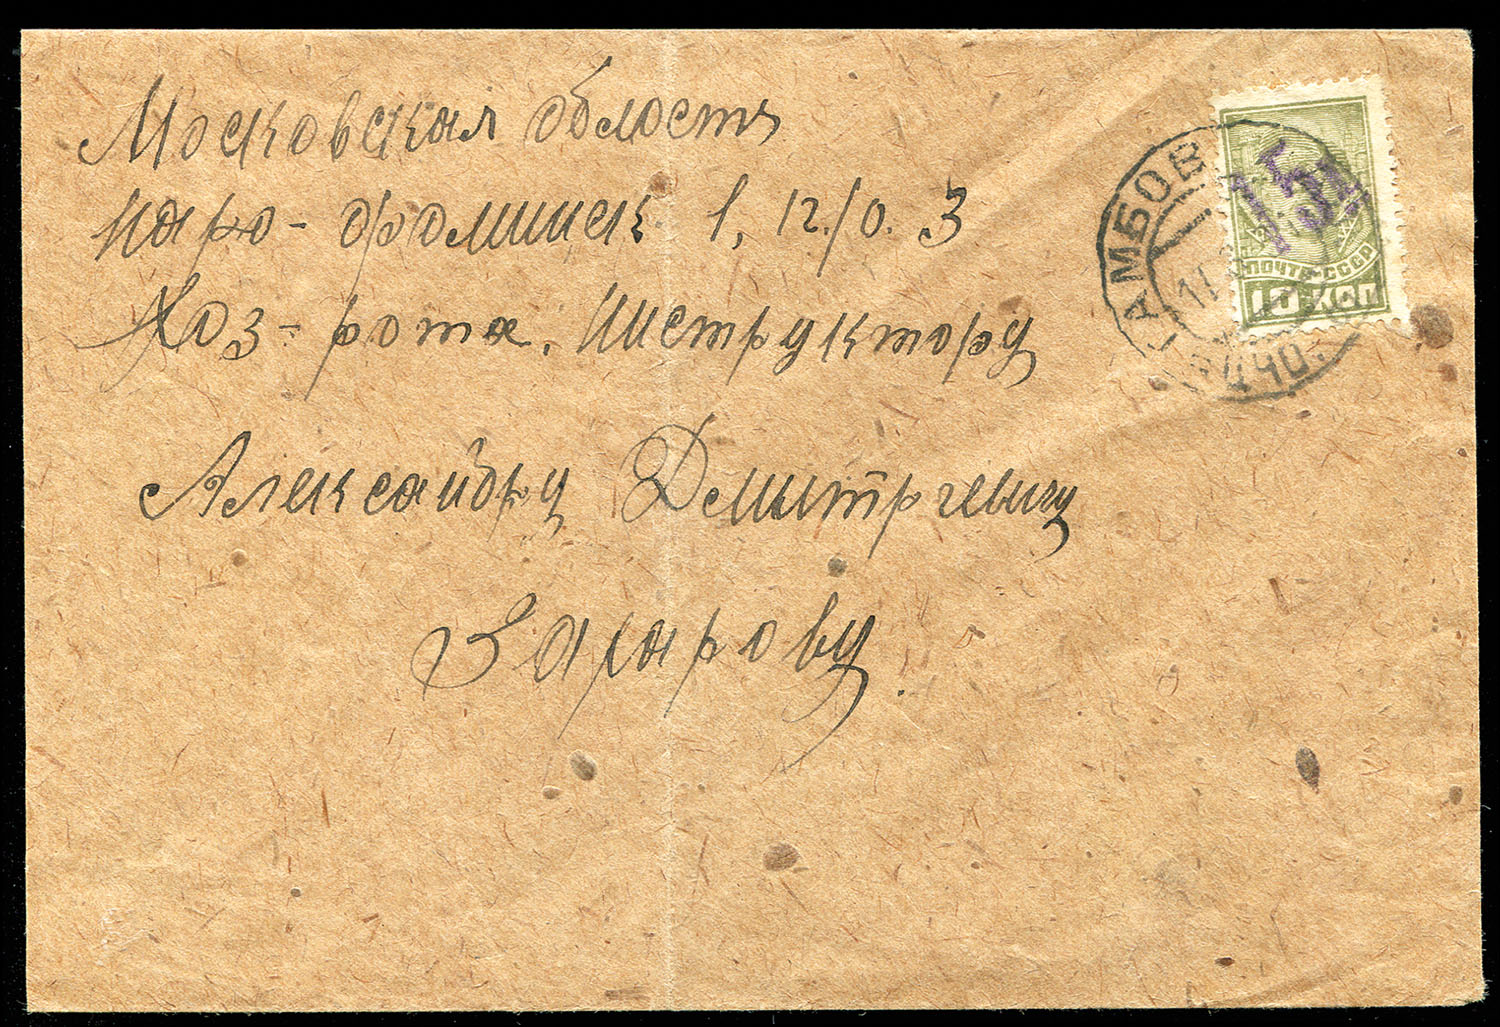 Московская область
Наро-фоминск 1, п/о. 3
Хоз-рота. Инструктору
Александру Дмитриевичу
Захарову.
ТАМБОВ
15к
ПОЧТА·СССР
10 КОП